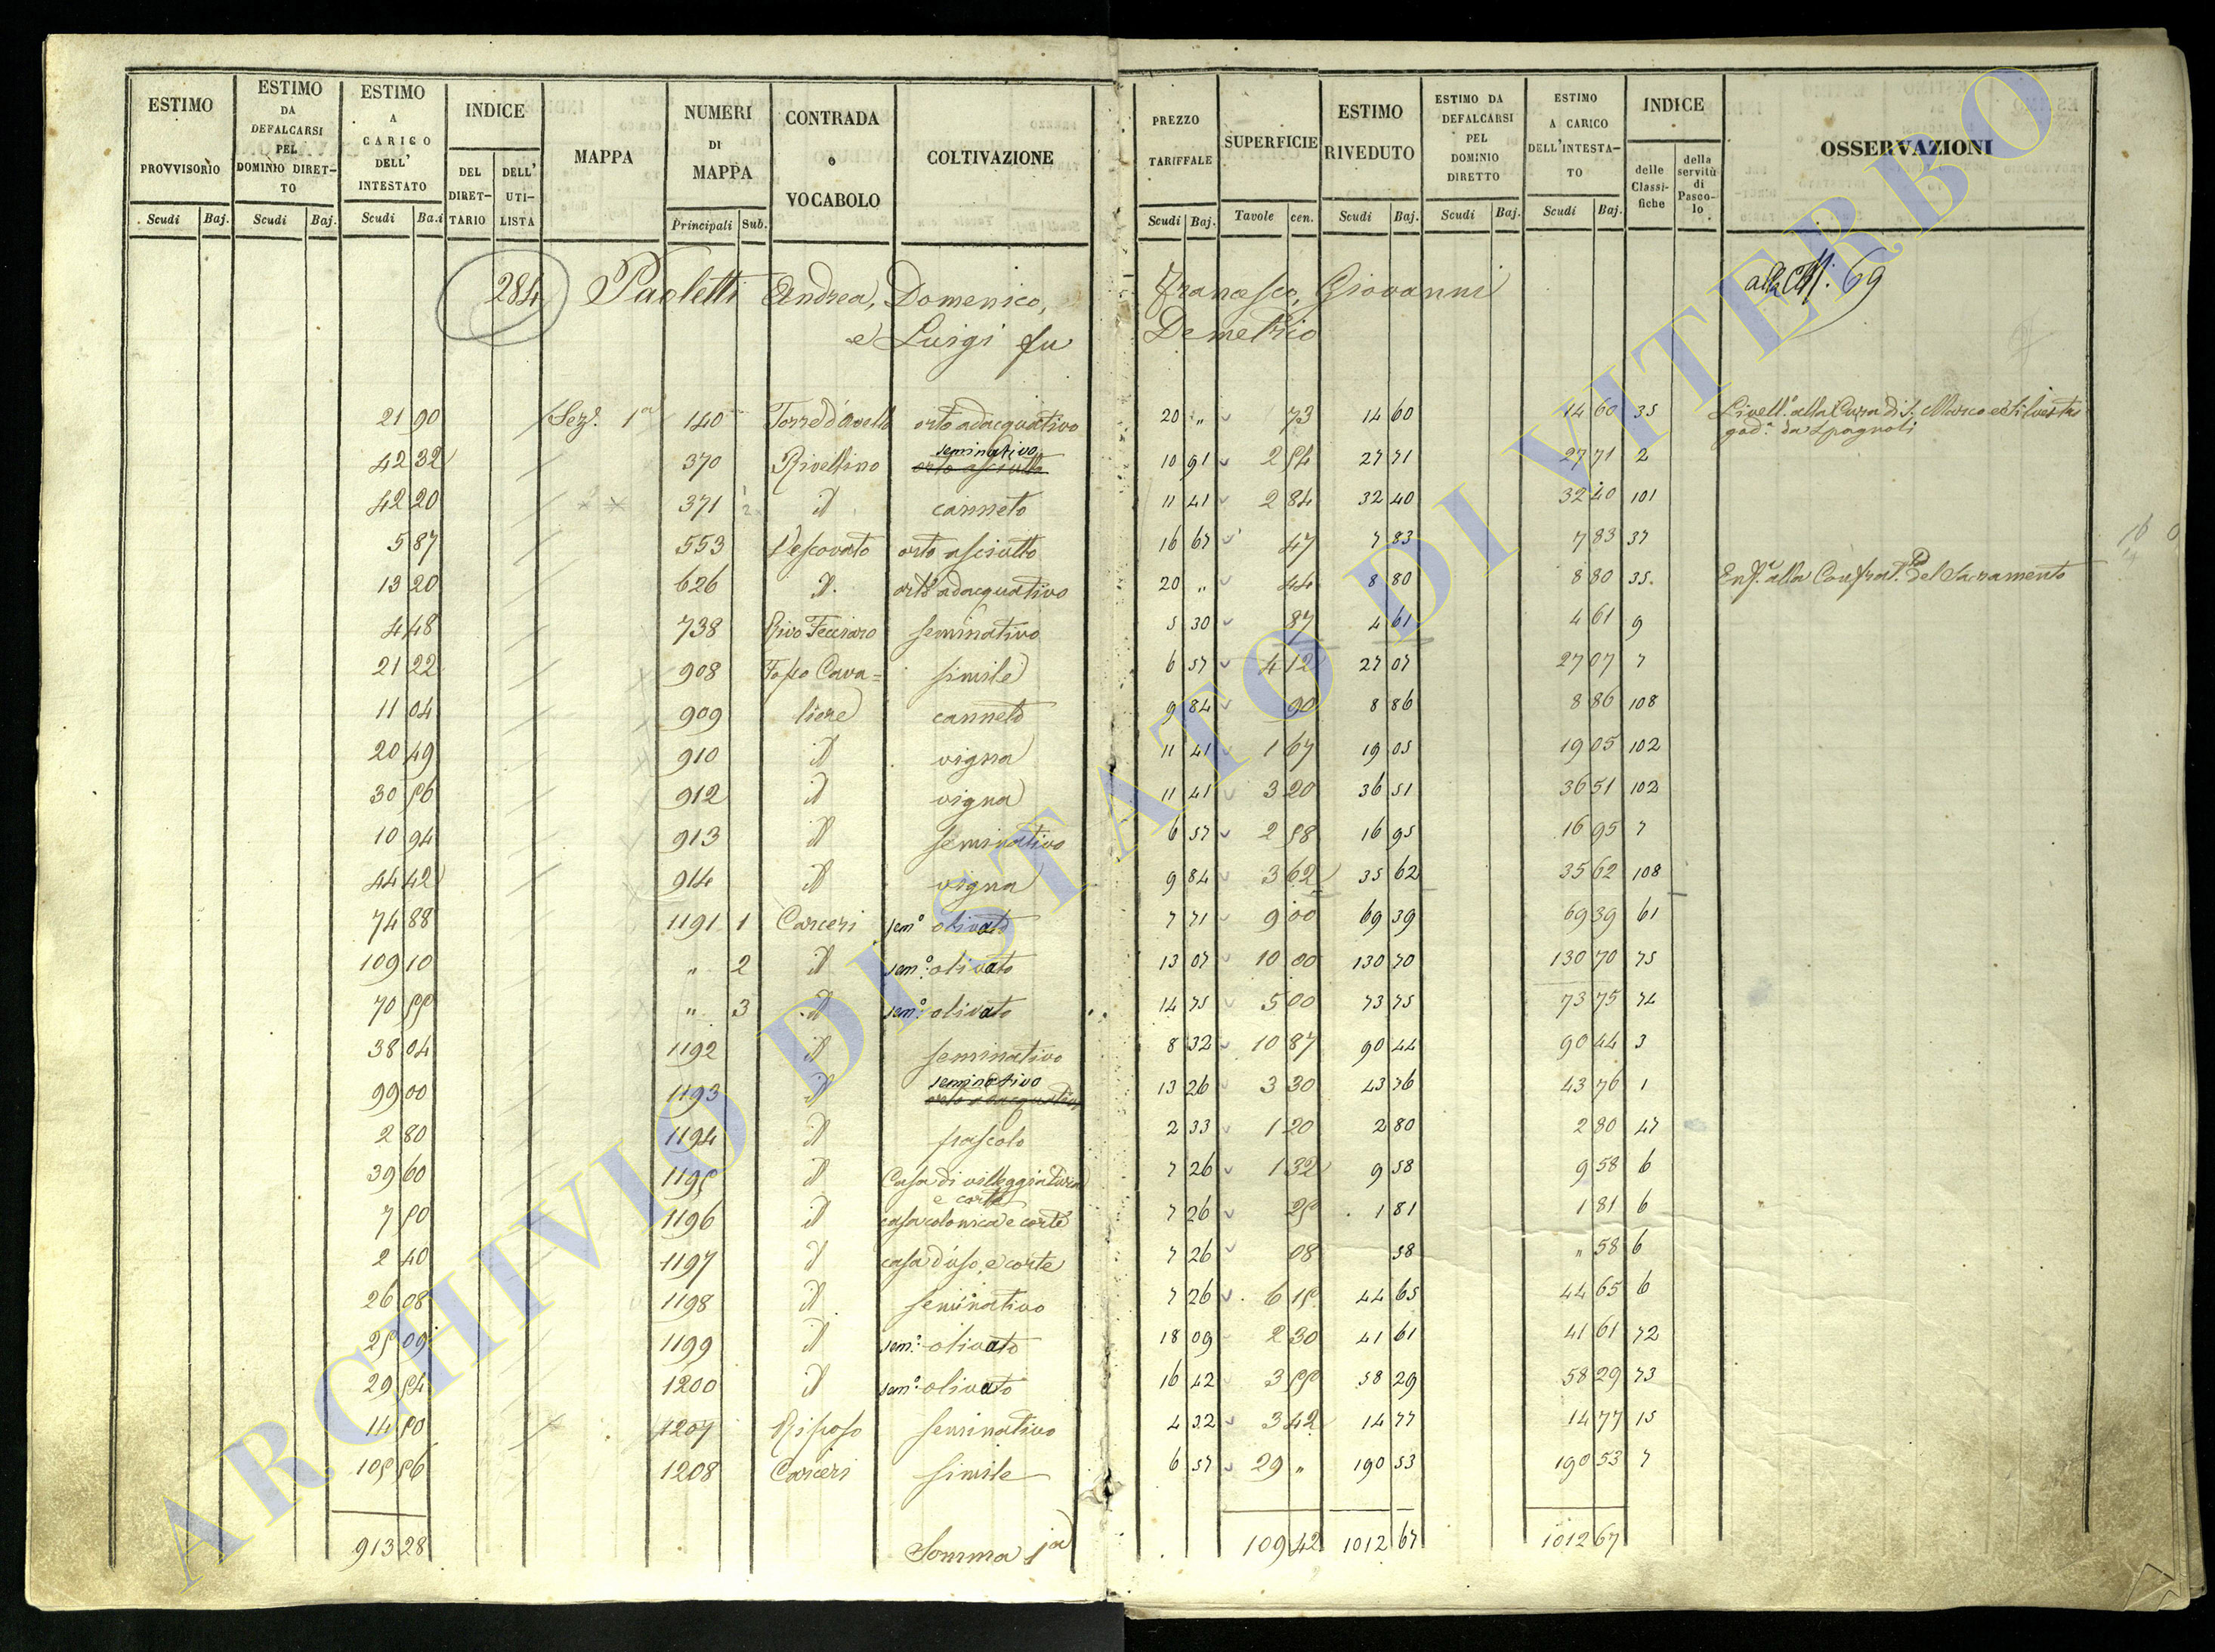 ESTIMO PROVVISORIO Scudi Baj.
ESTIMO DA DEFALCARSI PEL DOMINIO DIRET-TO Scudi Baj.
ESTIMO A CARICO DELL' INTESTATO Scudi Baj.
INDICE DEL DIRET-TARIO DELL' UTI-LISTA
MAPPA
NUMERI DI MAPPA Principali Sub.
CONTRADA o VOCABOLO
COLTIVAZIONE
PREZZO TARIFFALE Scudi Baj.
SUPERFICIE Tavole cen.
ESTIMO RIVEDUTO Scudi Baj.
ESTIMO DA DEFALCARSI PEL DOMINIO DIRETTO Scudi Baj.
ESTIMO A CARICO DELL'INTESTA-TO Scudi Baj.
INDICE delle Classi-fiche della servitù di Pasco-lo
OSSERVAZIONI
284 Paoletti Andrea, Domenico, Francesco, Giovanni 69
e Luigi fu Demetrio
21 90 Sez. 1a 140 orto adacquativo 20 " 73 14 60 14 60 35 Livell. alla Cura di S. Marco e Silvestro
god. da Spagnoli
42 32 370 Rivellino seminativo orto asciutto 10 91 2 54 27 71 27 71 2
42 20 371 id canneto 11 41 2 84 32 40 32 40 101
5 87 553 Vescovato orto asciutto 16 67 47 7 83 7 83 37
13 20 626 id. orto adacquativo 20 " 44 8 80 8 80 35. alla Confrat. del Sacramento
4 48 738 Rivo seminativo 5 30 87 4 61 4 61 9
21 22 908 Fosso Cava= simile 6 57 4 12 27 07 27 07 7
11 04 909 liere canneto 9 84 90 8 86 8 86 108
20 49 910 id vigna 11 41 1 67 19 05 19 05 102
30 56 912 id vigna 11 41 3 20 36 51 36 51 102
10 94 913 id seminativo 6 57 2 58 16 95 16 95 7
44 42 914 id vigna 9 84 3 62 35 62 35 62 108
74 88 1191 1 Carceri semo olivato 7 71 9 00 69 39 69 39 61
109 10 " 2 id semo: olivato 13 07 10 00 130 70 130 70 75
70 55 " 3 id semo: olivato 14 75 5 00 73 75 73 75 74
38 04 1192 id seminativo 8 32 10 87 90 44 90 44 3
99 00 1193 id seminativo orto adacquativo 13 26 3 30 43 76 43 76 1
2 80 1194 id pascolo 2 33 1 20 2 80 2 80 47
39 60 1195 id Casa di villeggiatura e corte 7 26 1 32 9 58 9 58 6
7 50 1196 id casa colonica e corte 7 26 25 1 81 1 81 6
2 40 1197 id casa d'uso, e corte 7 26 08 58 " 58 6
26 08 1198 id seminativo 7 26 6 15 44 65 44 65 6
25 09 1199 id sem: olivato 18 09 2 30 41 61 41 61 72
29 54 1200 id semo: olivato 16 42 3 55 58 29 58 29 73
14 50 1207 Riposo seminativo 4 32 3 42 14 77 14 77 15
105 56 1208 Carceri simile 6 57 29 " 190 53 190 53 7
913 28 Somma 1a 109 42 1012 67 1012 67
ARCHIVIO DI STATO DI VITERBO